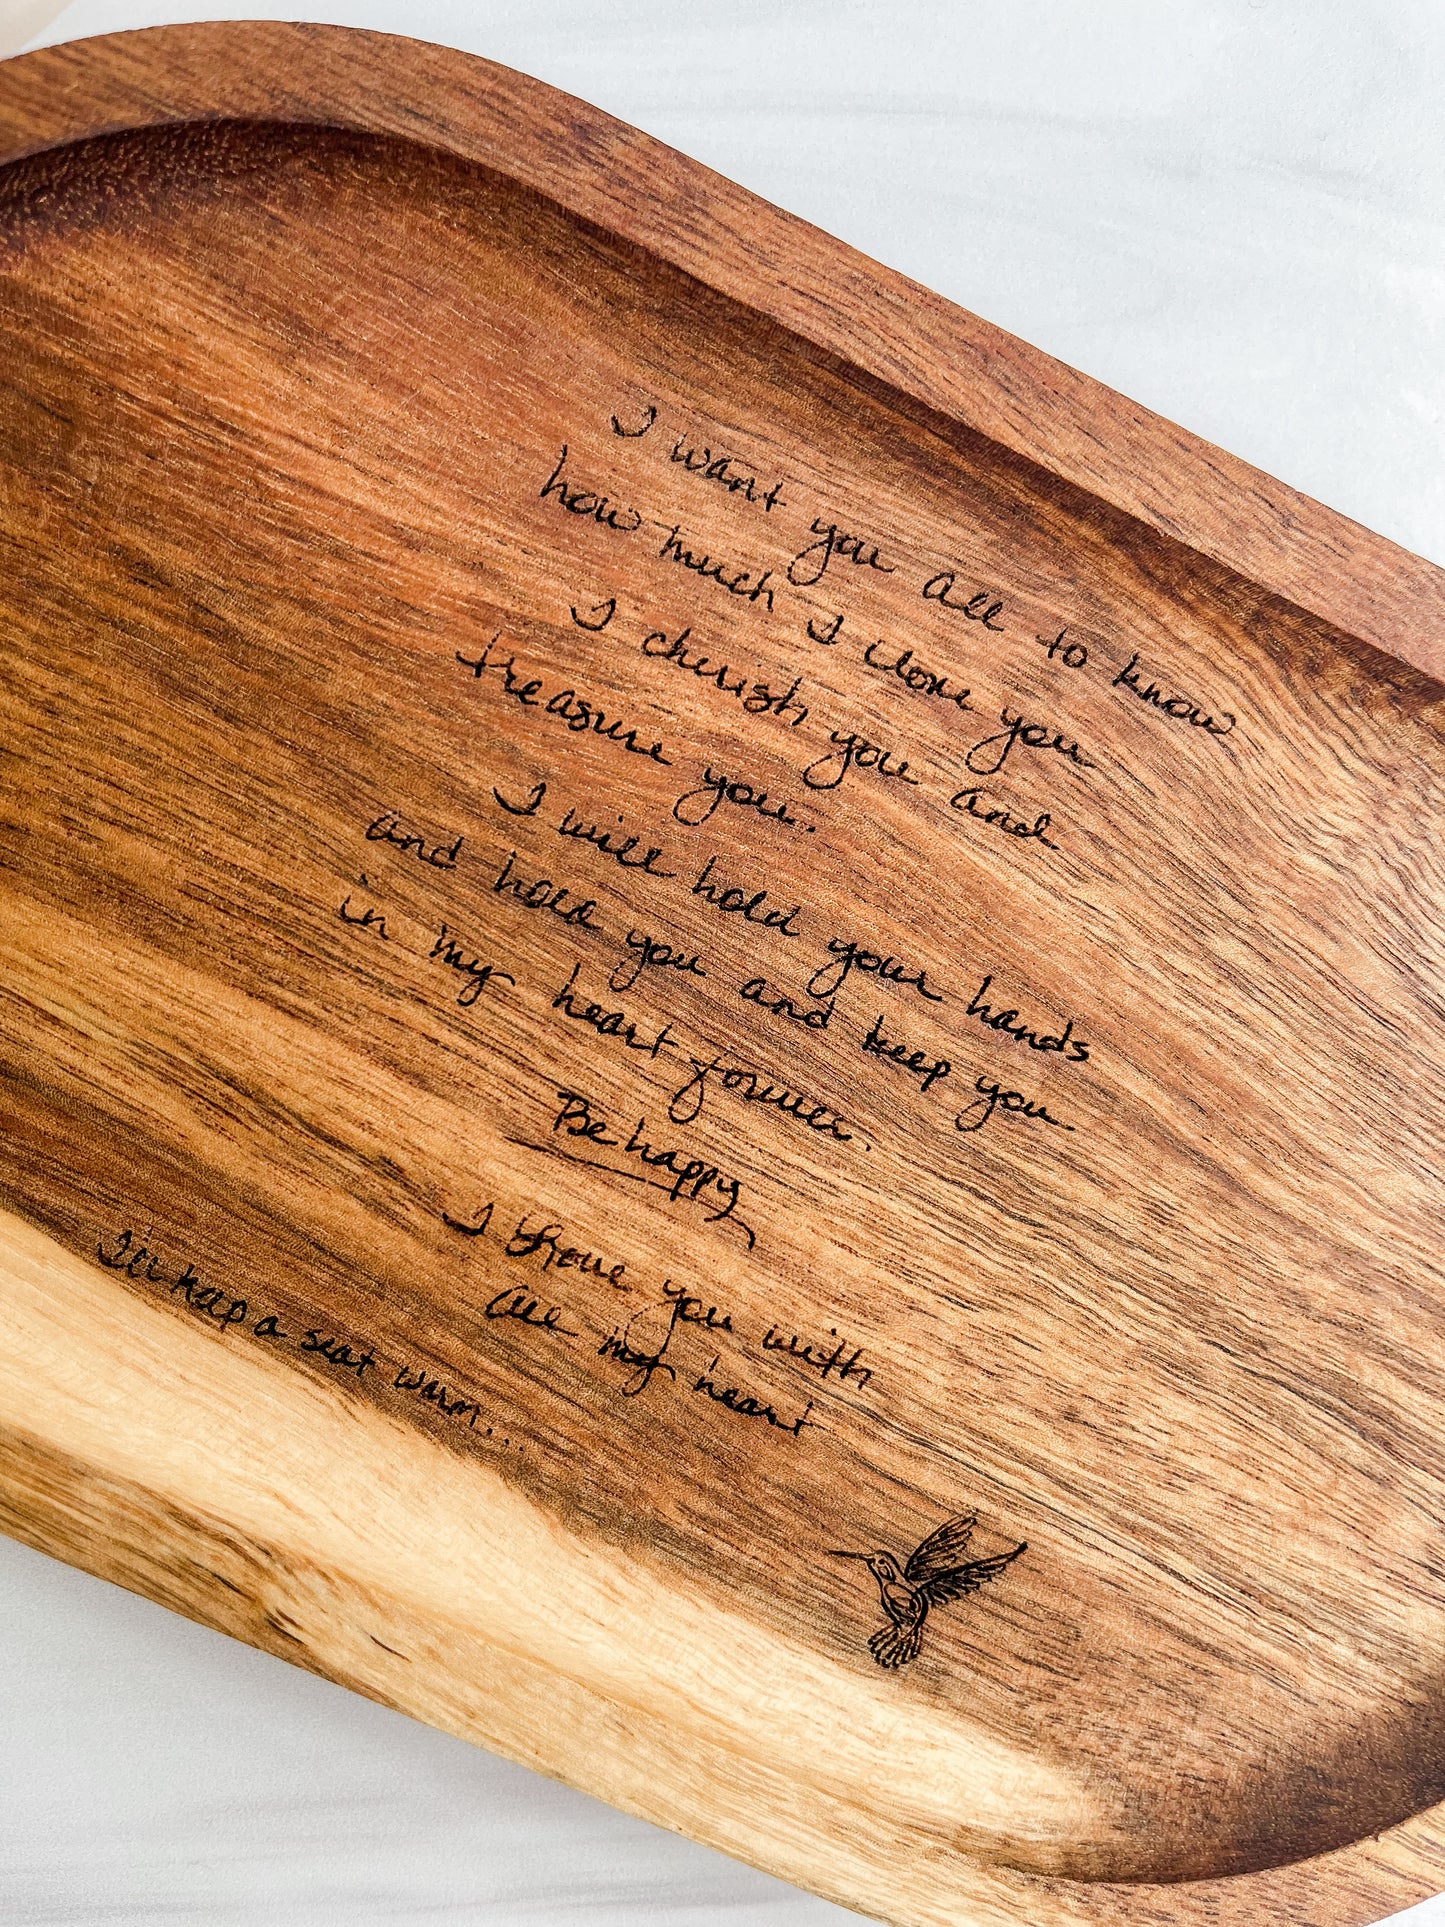 I want you all to know
how much I love you
I cherish you and
treasure you.
I will hold your hands
and hold you and keep you
in my heart forever.
Be happy
I love you with
all my heart
I'll keep a seat warm...